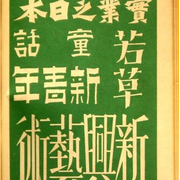 實業之日本
若草
童話
新青年
新興藝術